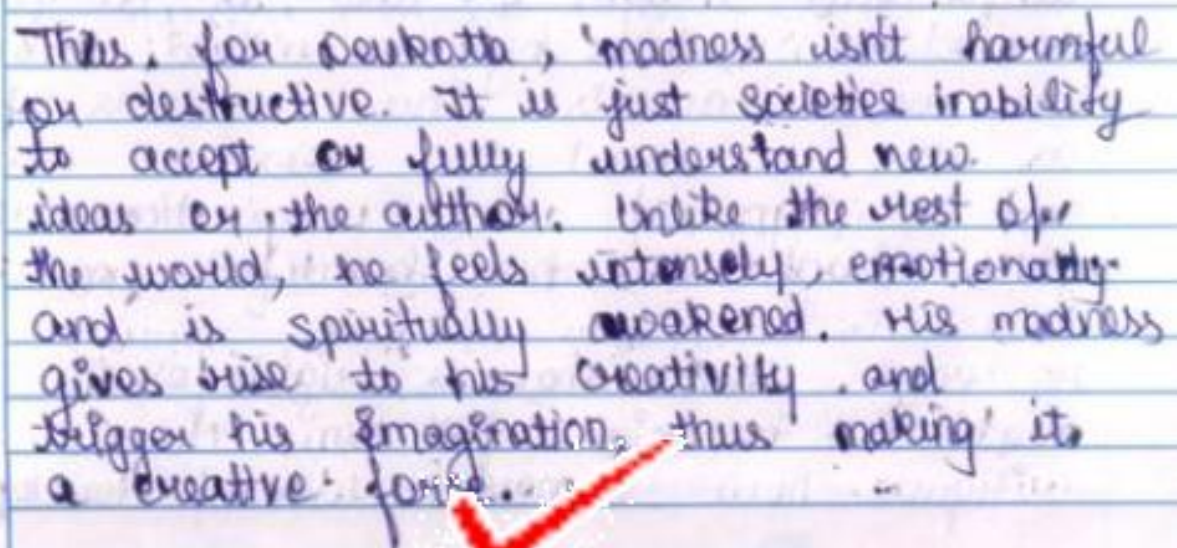 Thus, for Devkotta, 'madness isn't harmful
or destructive. It is just societies inability
to accept or fully understand new
ideas or the author. Unlike the rest of
the world, he feels intensely, emotionally
and is spiritually awakened. His madness
gives rise to his creativity and
trigger his imagination, thus making it
a creative force.